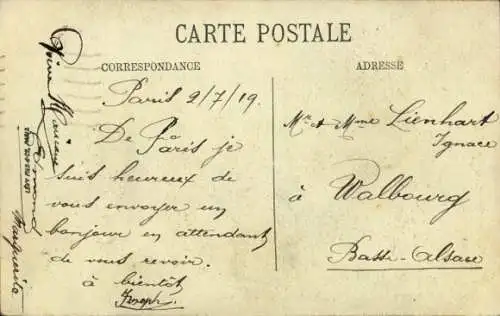 CARTE POSTALE
CORRESPONDANCE
ADRESSE
Paris 2/7/19.
De Paris je
suis heureux de
vous envoyer un
bonjour en attendant
de vous revoir.
à bientôt
Joseph
Mr et Mme Lienhart
Ignace
à Walbourg
Basse-Alsace
Marguerite